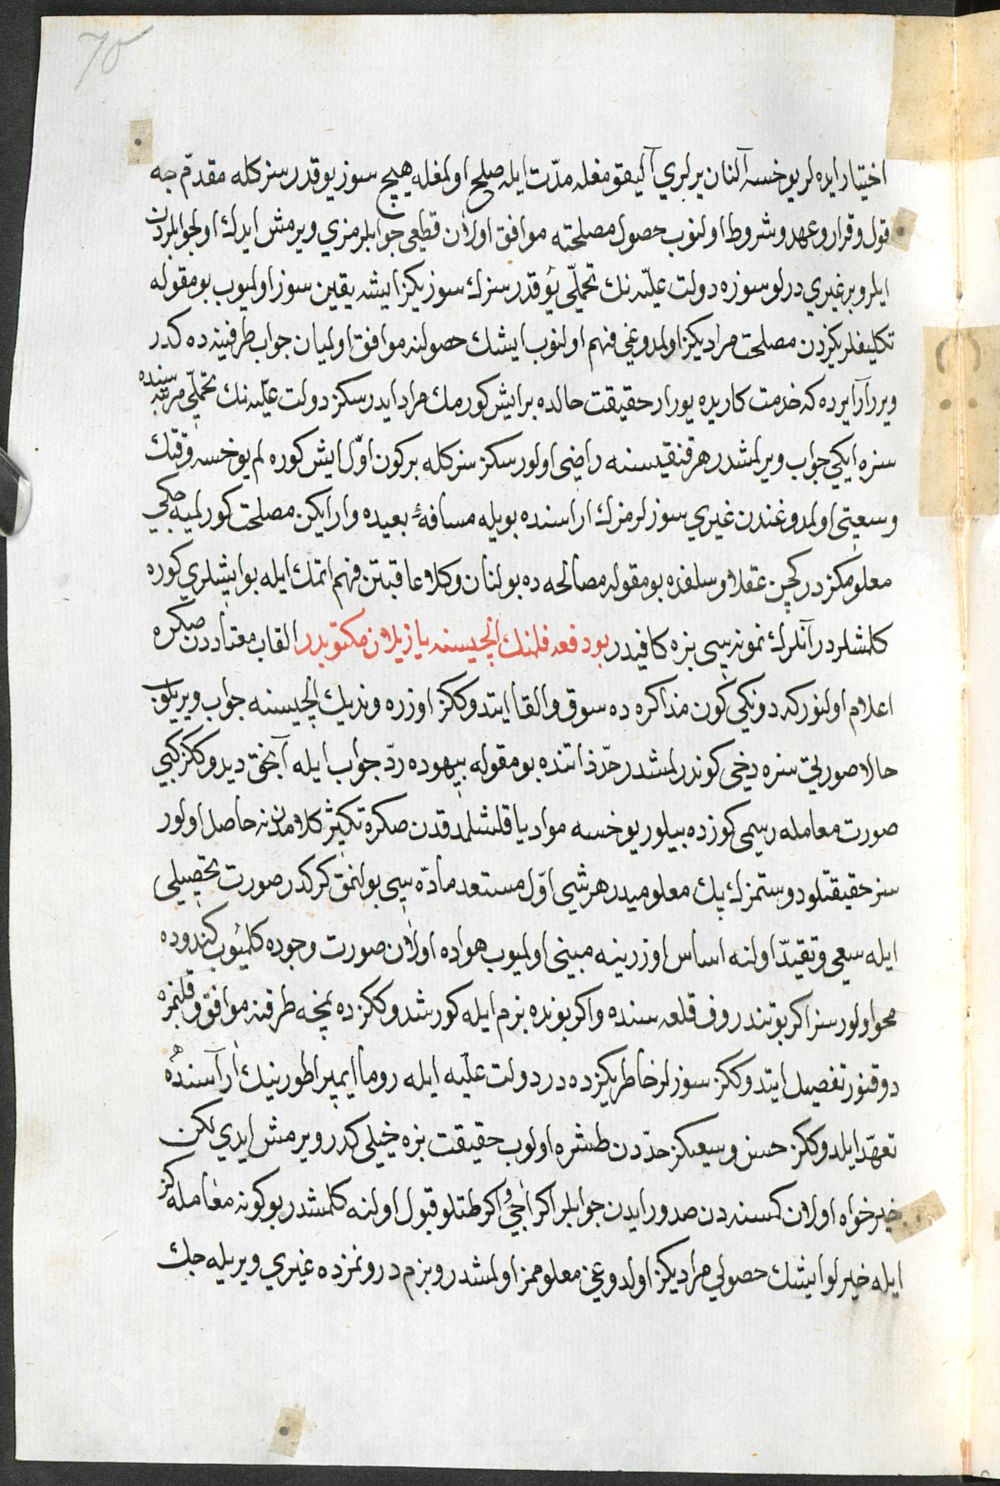 70
اختيار ايده لر يوخسه آلنان يرلري آليقومغله مدّت ايله صلح اولمغله هيچ سوز يوقدر سز كله مقدّم جه
قول و قرار و عهد و شروط اولنوب حصول مصلحته موافق اولان قطيعى جوابلرمزي ويرمش ايدك اولجوابلردن
ايلرو بر غيري درلو سوزه دولت عليّه نك تحمّلى يؤقدر سزك سوزيكز ايشه يقين سوز اولميوب بومقوله
تكليفلريكزدن مصلحت مراديكز اولمدوغي فهم اولنوب ايشك حصولنه موافق اولميان جواب طرفينه ده كدر
ويرر آرايرده كه خدمت كاريره يورار حقيقت حالده بر ايش كورمك مراد ايدرسكز دولت عليّه نك تحمّلى مرتبه سنده
سزه ايكي جواب ويرلمشدر هر قنقيسنه راضى اولورسكز سز كله بركون اوّل ايش كوره لم يوخسه وقتك
وسعيتى اولمدوغندن غيري سوزلرمزك اراسنده بويله مسافهٔ بعيده وار ايكن مصلحت كورلميه جكي
معلومكزدر كچن عقلا و سلفزه بومقوله مصالحه ده بولنان وكلا عاقبتن فهم اتمك ايله بو ايشلري كوره
كلمشلردر آنلرك نمونه سى بزه كافيدر بو دفعه فلمنك الچيسنه يازيلان مكتوبدر القاب معتاددن صكره
اعلام اولنور كه دونكي كون مذاكره ده سوق و القا ايتدوككز اوزره ونديك الچيسنه جواب ويريلوب
حالا صورتي سزه دخى كوندرلمشدر حدّ ذاتنده بومقوله بيهوده ردّ جواب ايله آنجق ديدوككز كبي
صورت معامله رسمى كوزده بيلور يوخسه مواد ياقلشلمدقدن صكره تكثير كلامدن نه حاصل اولور
سز حقيقتلو دوستمزك پك معلوميدر هر شى اوّل مستعد مادّه سى بولنمق كركدر صورت تحصيلى
ايله سعى و تقيّد اولنه اساس اوزرينه مبينى اولميوب هواده اولان صورت وجوده كلميوب كندوده
محو اولور سز اكر بوتندروف قلعه سنده و اكر بونده بزم ايله كورشدوككزده نجه طرفنه موافق و قلبمزه
دوقنور تفصيل ايتدوككز سوزلر خاطريكزده در دولت عليّه ايله روما ايمپراطورينك آراسنده
تعهّد ايلدوككز حسن و سيعكز حدّدن طشره اولوب حقيقت بزه خيلى كدر ويرمش ايدي لكن
خيرخواه اولان كمسنه دن صدور ايدن جوابلر اكر اٰجئ و اكر طتلو قبول اولنه كلمشدر بوكونه معامله كز
ايله خيرلو ايشك حصولي مراديكز اولدوغي معلوممز اولمشدر و بزم درونمزده غيري ويريله جك